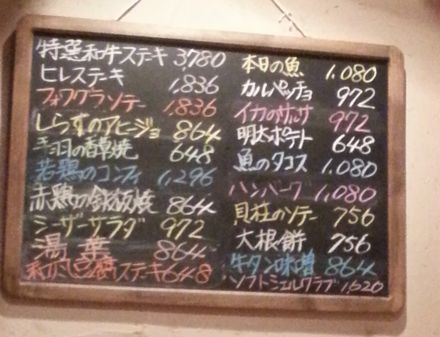 特選和牛ステキ 3,780
ヒレステーキ 1,836
フォアグラソテー 1,836
しらすのアヒージョ 864
手羽の香草焼 648
若鶏のコンフィ 1,296
赤鶏の鉄板焼 864
シーザーサラダ 972
湯葉 864
ステーキ 648
本日の魚 1,080
カルパッチョ 972
イカのサルサ 972
明太ポテト 648
魚のタコス 1,080
ハンバーグ 1,080
貝柱のソテー 756
大根餅 756
牛タン味噌 864
ソフトシェルクラブ 1,620